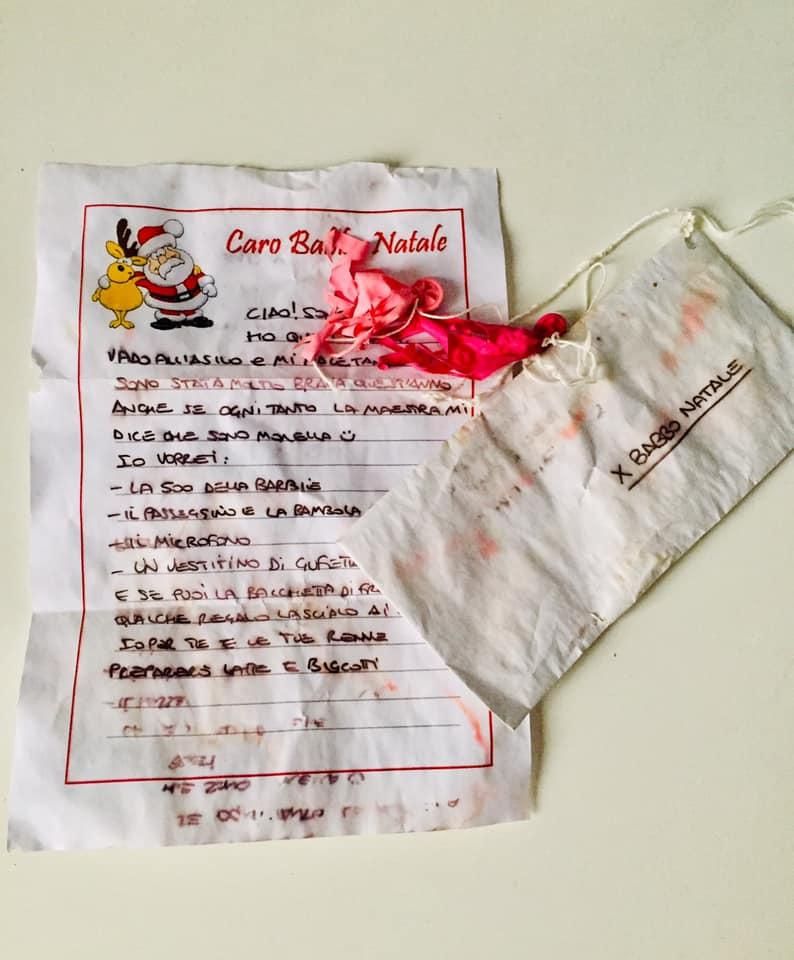 Caro Babbo Natale
CIAO! SO
HO
VADO ALL'ASILO E MI
SONO STATA MOLTO BRAVA QUEST'ANNO
ANCHE SE OGNI TANTO LA MAESTRA MI
DICE CHE SONO MONELLA
IO VORREI:
- LA 500 DELLA BARBIE
- IL PASSEGGINO E LA BAMBOLA
- IL MICROFONO
- UN VESTITINO DI
E SE PUOI LA BACCHETTA DI
QUALCHE REGALO LASCIALO AI
IO PER TE E LE TUE RENNE
PREPARERÒ LATTE E BISCOTTI
X BABBO NATALE